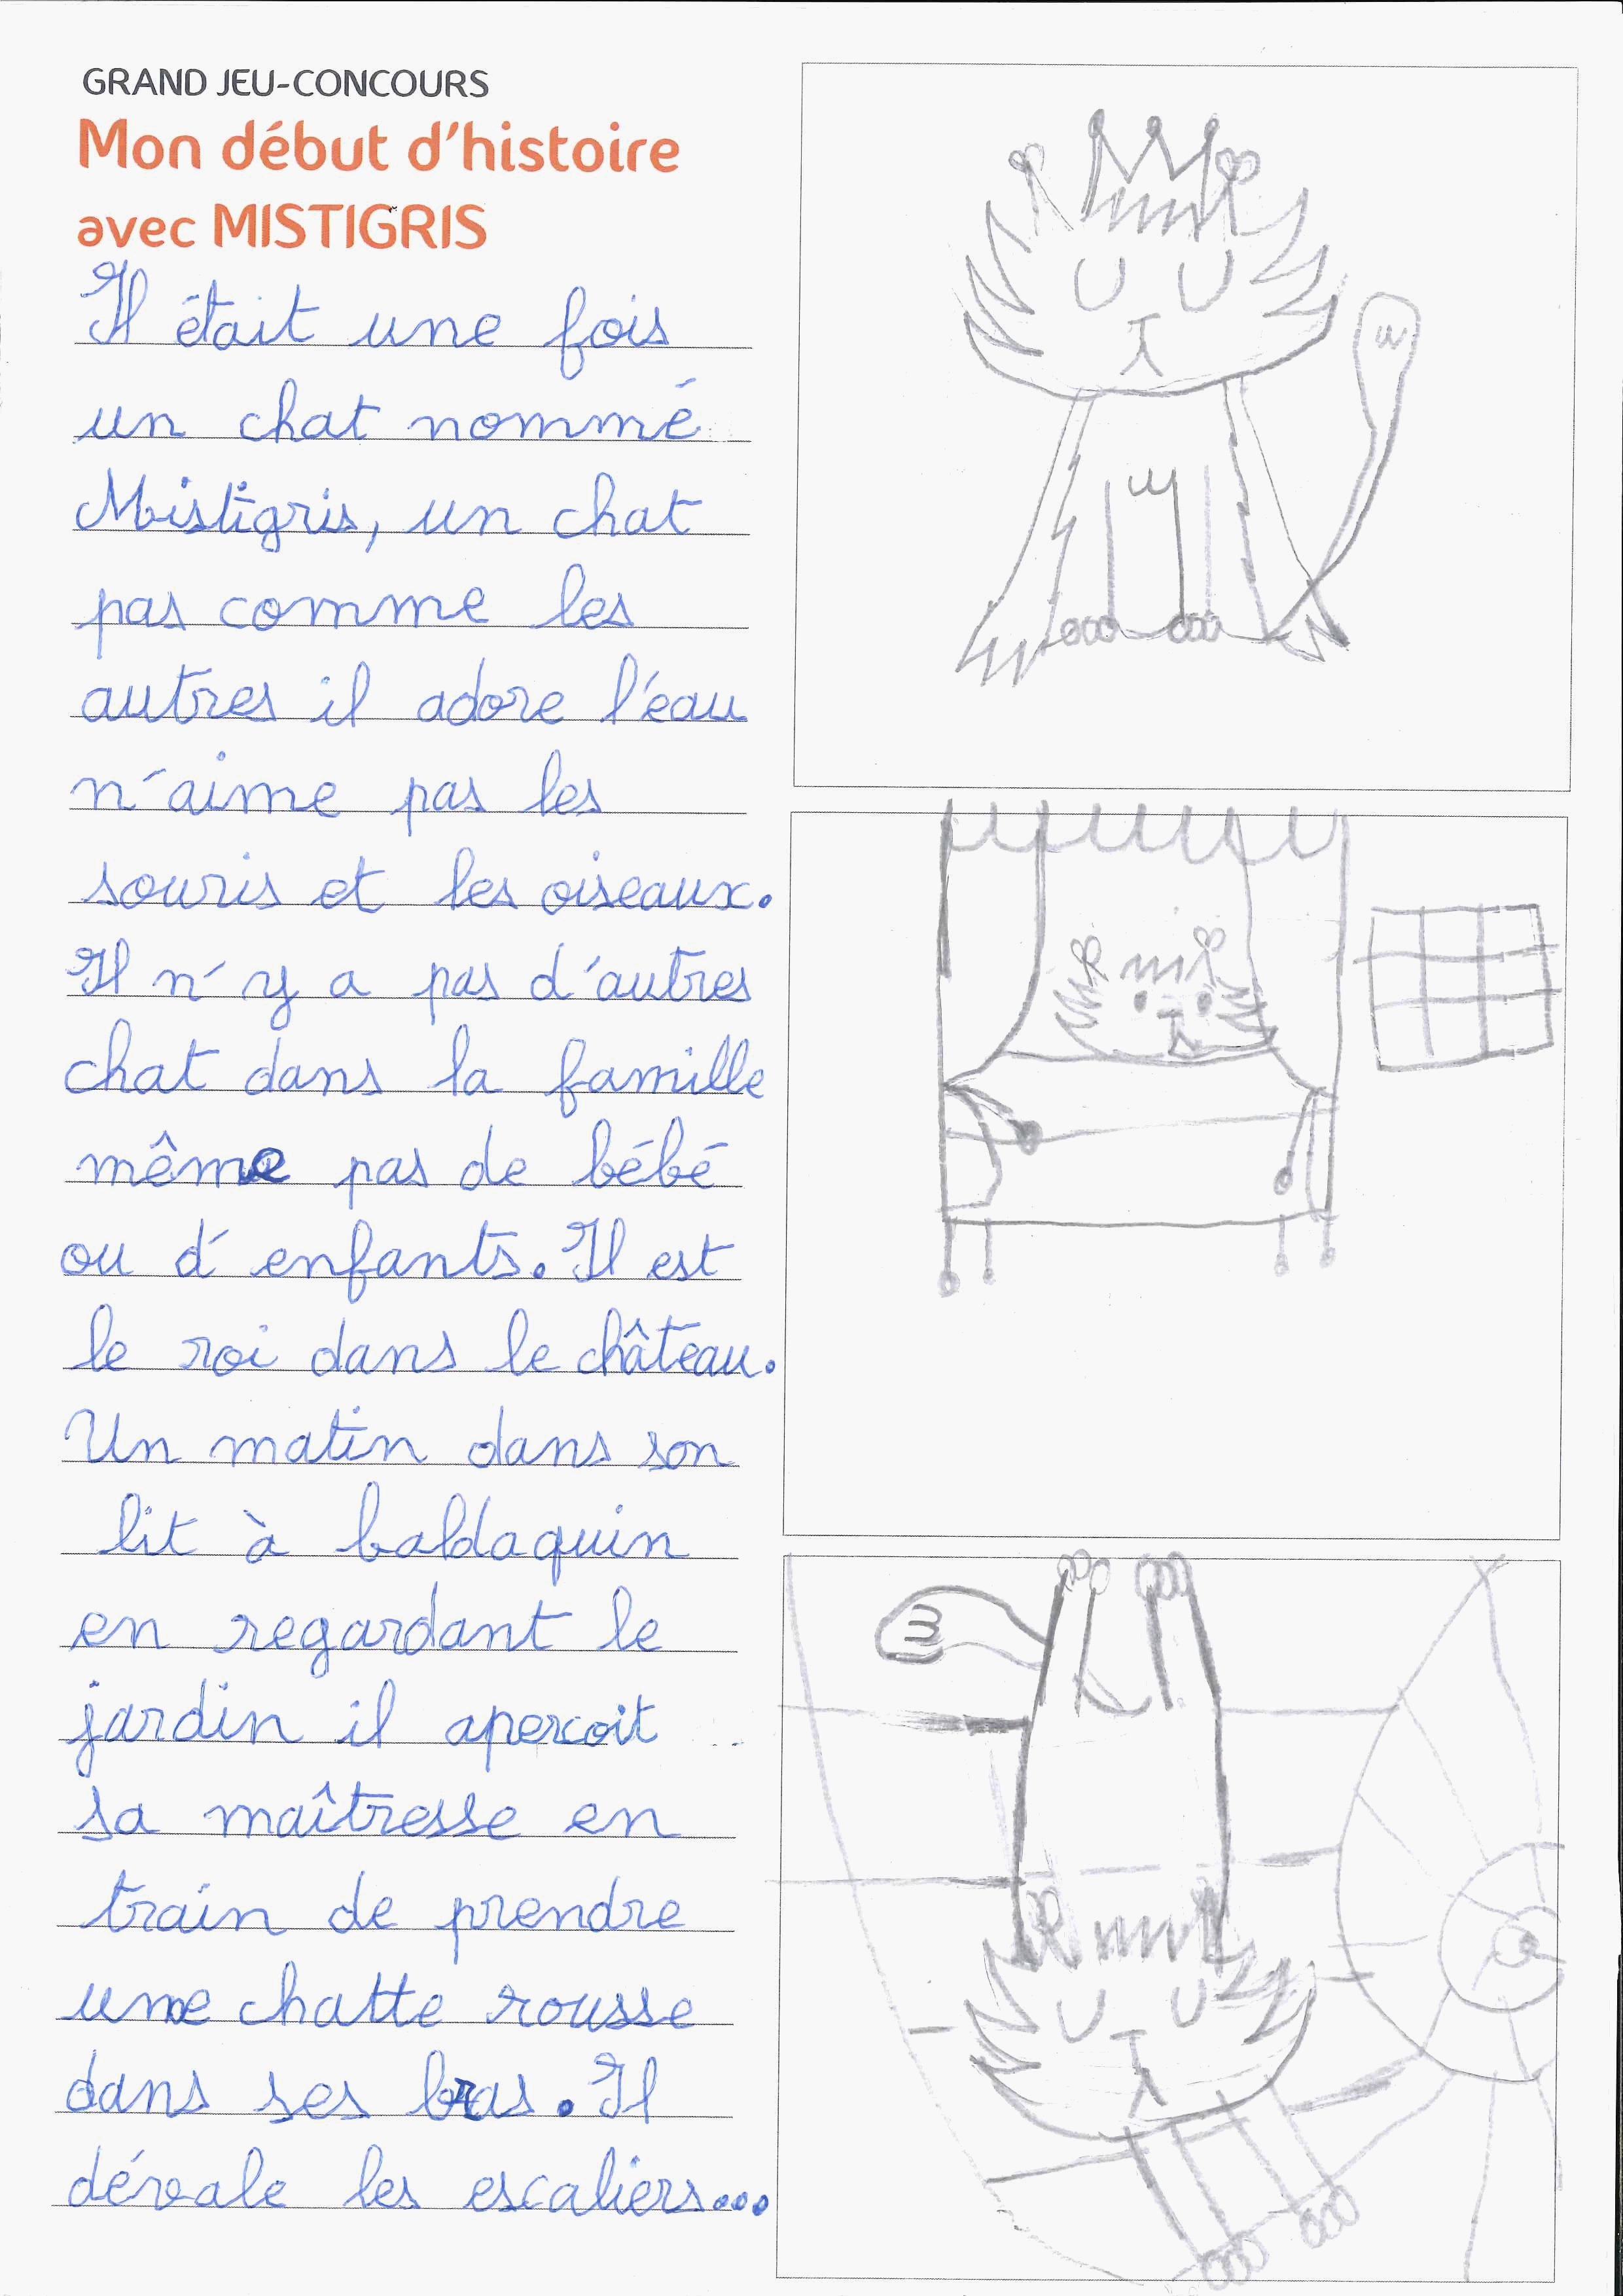 GRAND JEU-CONCOURS
Mon début d'histoire
avec MISTIGRIS
Il était une fois
un chat nommé
Mistigris, un chat
pas comme les
autres il adore l'eau
n'aime pas les
souris et les oiseaux.
Il n'y a pas d'autres
chat dans la famille
même pas de bébé
ou d'enfants. Il est
le roi dans le château.
Un matin dans son
lit à baldaquin
en regardant le
jardin il apercoit
sa maîtresse en
train de prendre
une chatte rousse
dans ses bras. Il
dévale les escaliers...